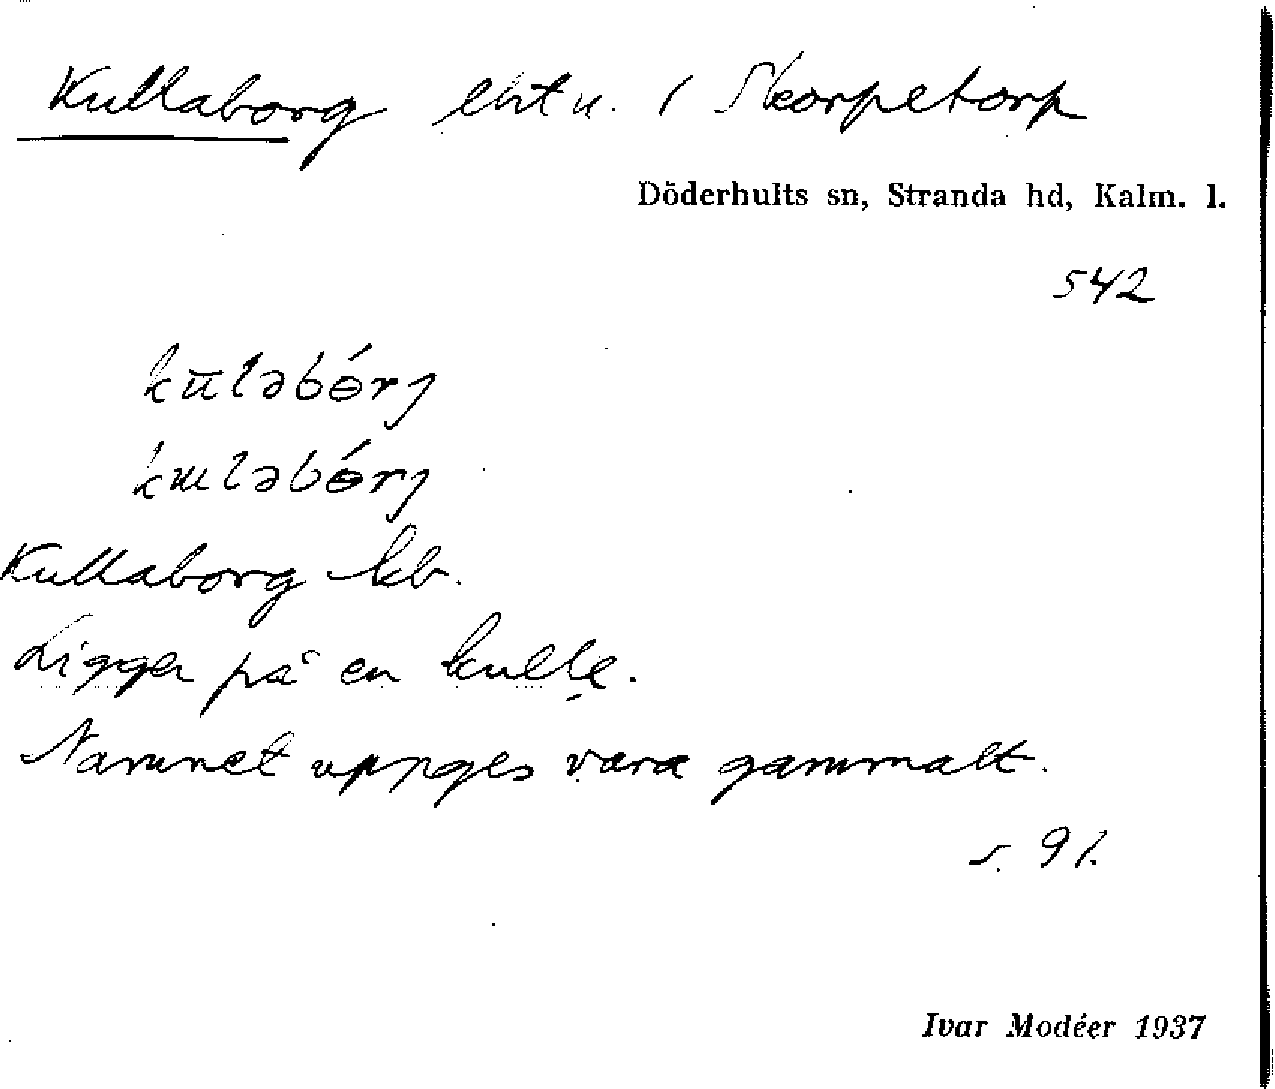 Kullaborg lht u. / Skorpetorp
Döderhults sn, Stranda hd, Kalm. l.
542
kūləbɵ́rj
kɯləbɵ́rj
Kullaborg kb.
Ligger på en kulle.
Namnet uppges vara gammalt.
s. 91.
Ivar Modéer 1937